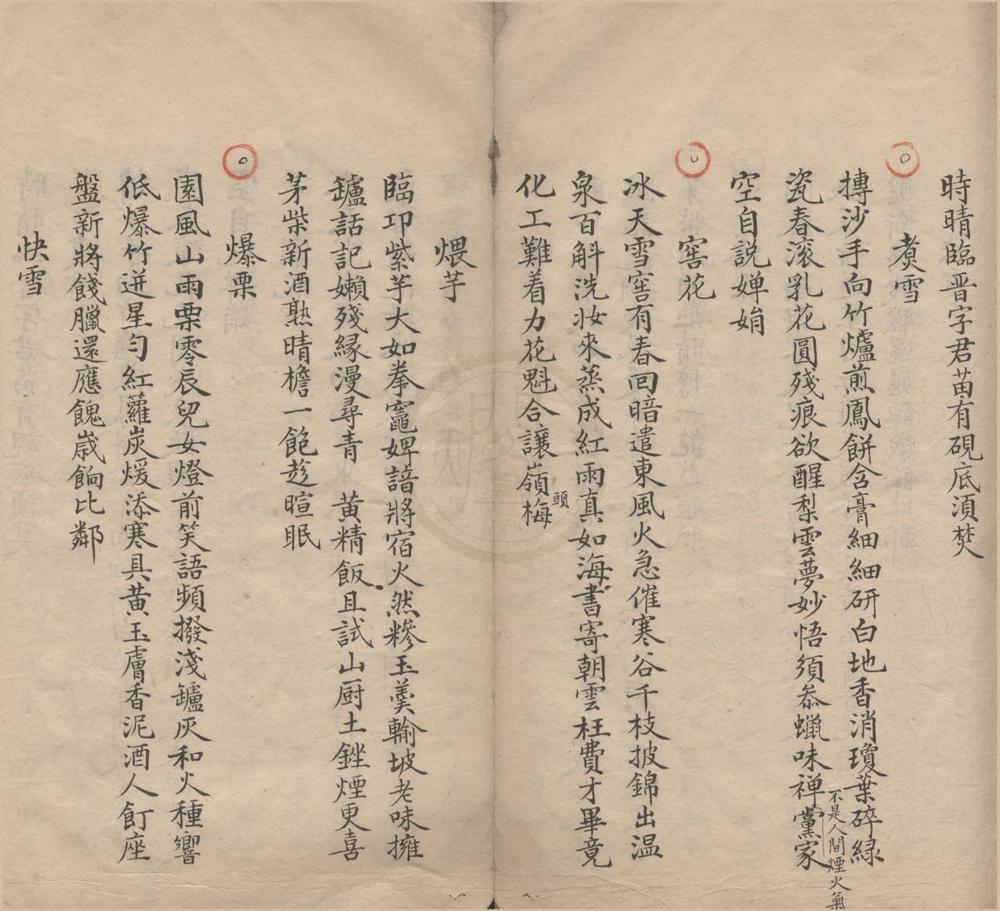 時晴臨晋字君苗有硯底湏焚
煑雪
摶沙手向竹爐煎鳳餅含膏細細研白地香消瓊葉碎綠
瓷春滚乳花圓殘痕欲醒梨雲夢妙悟須叅蠟味禅黨家
不是人間煙火氣
空自説嬋娟
窖花
冰天雪窖有春回暗遣東風火急催寒谷千枝披錦出温
泉百斛洗妝來蒸成紅雨真如海書寄朝雲枉費才畢竟
頭
化工難着力花魁合讓嶺梅
煨芋
臨卭紫芋大如拳竈婢諳將宿火然糝玉羹輸坡老味擁
鑪話記嬾殘縁漫尋青 黄精飯且試山厨土銼煙更喜
茅柴新酒熟晴檐一飽趁暄眠
爆栗
園風山雨栗零辰兒女燈前笑語頻撥淺鑪灰和火種響
低爆竹迸星匀紅籮炭煖添寒具黄玉膚香泥酒人飣座
盤新將餞臘還應餽歳餉比鄰
快雪